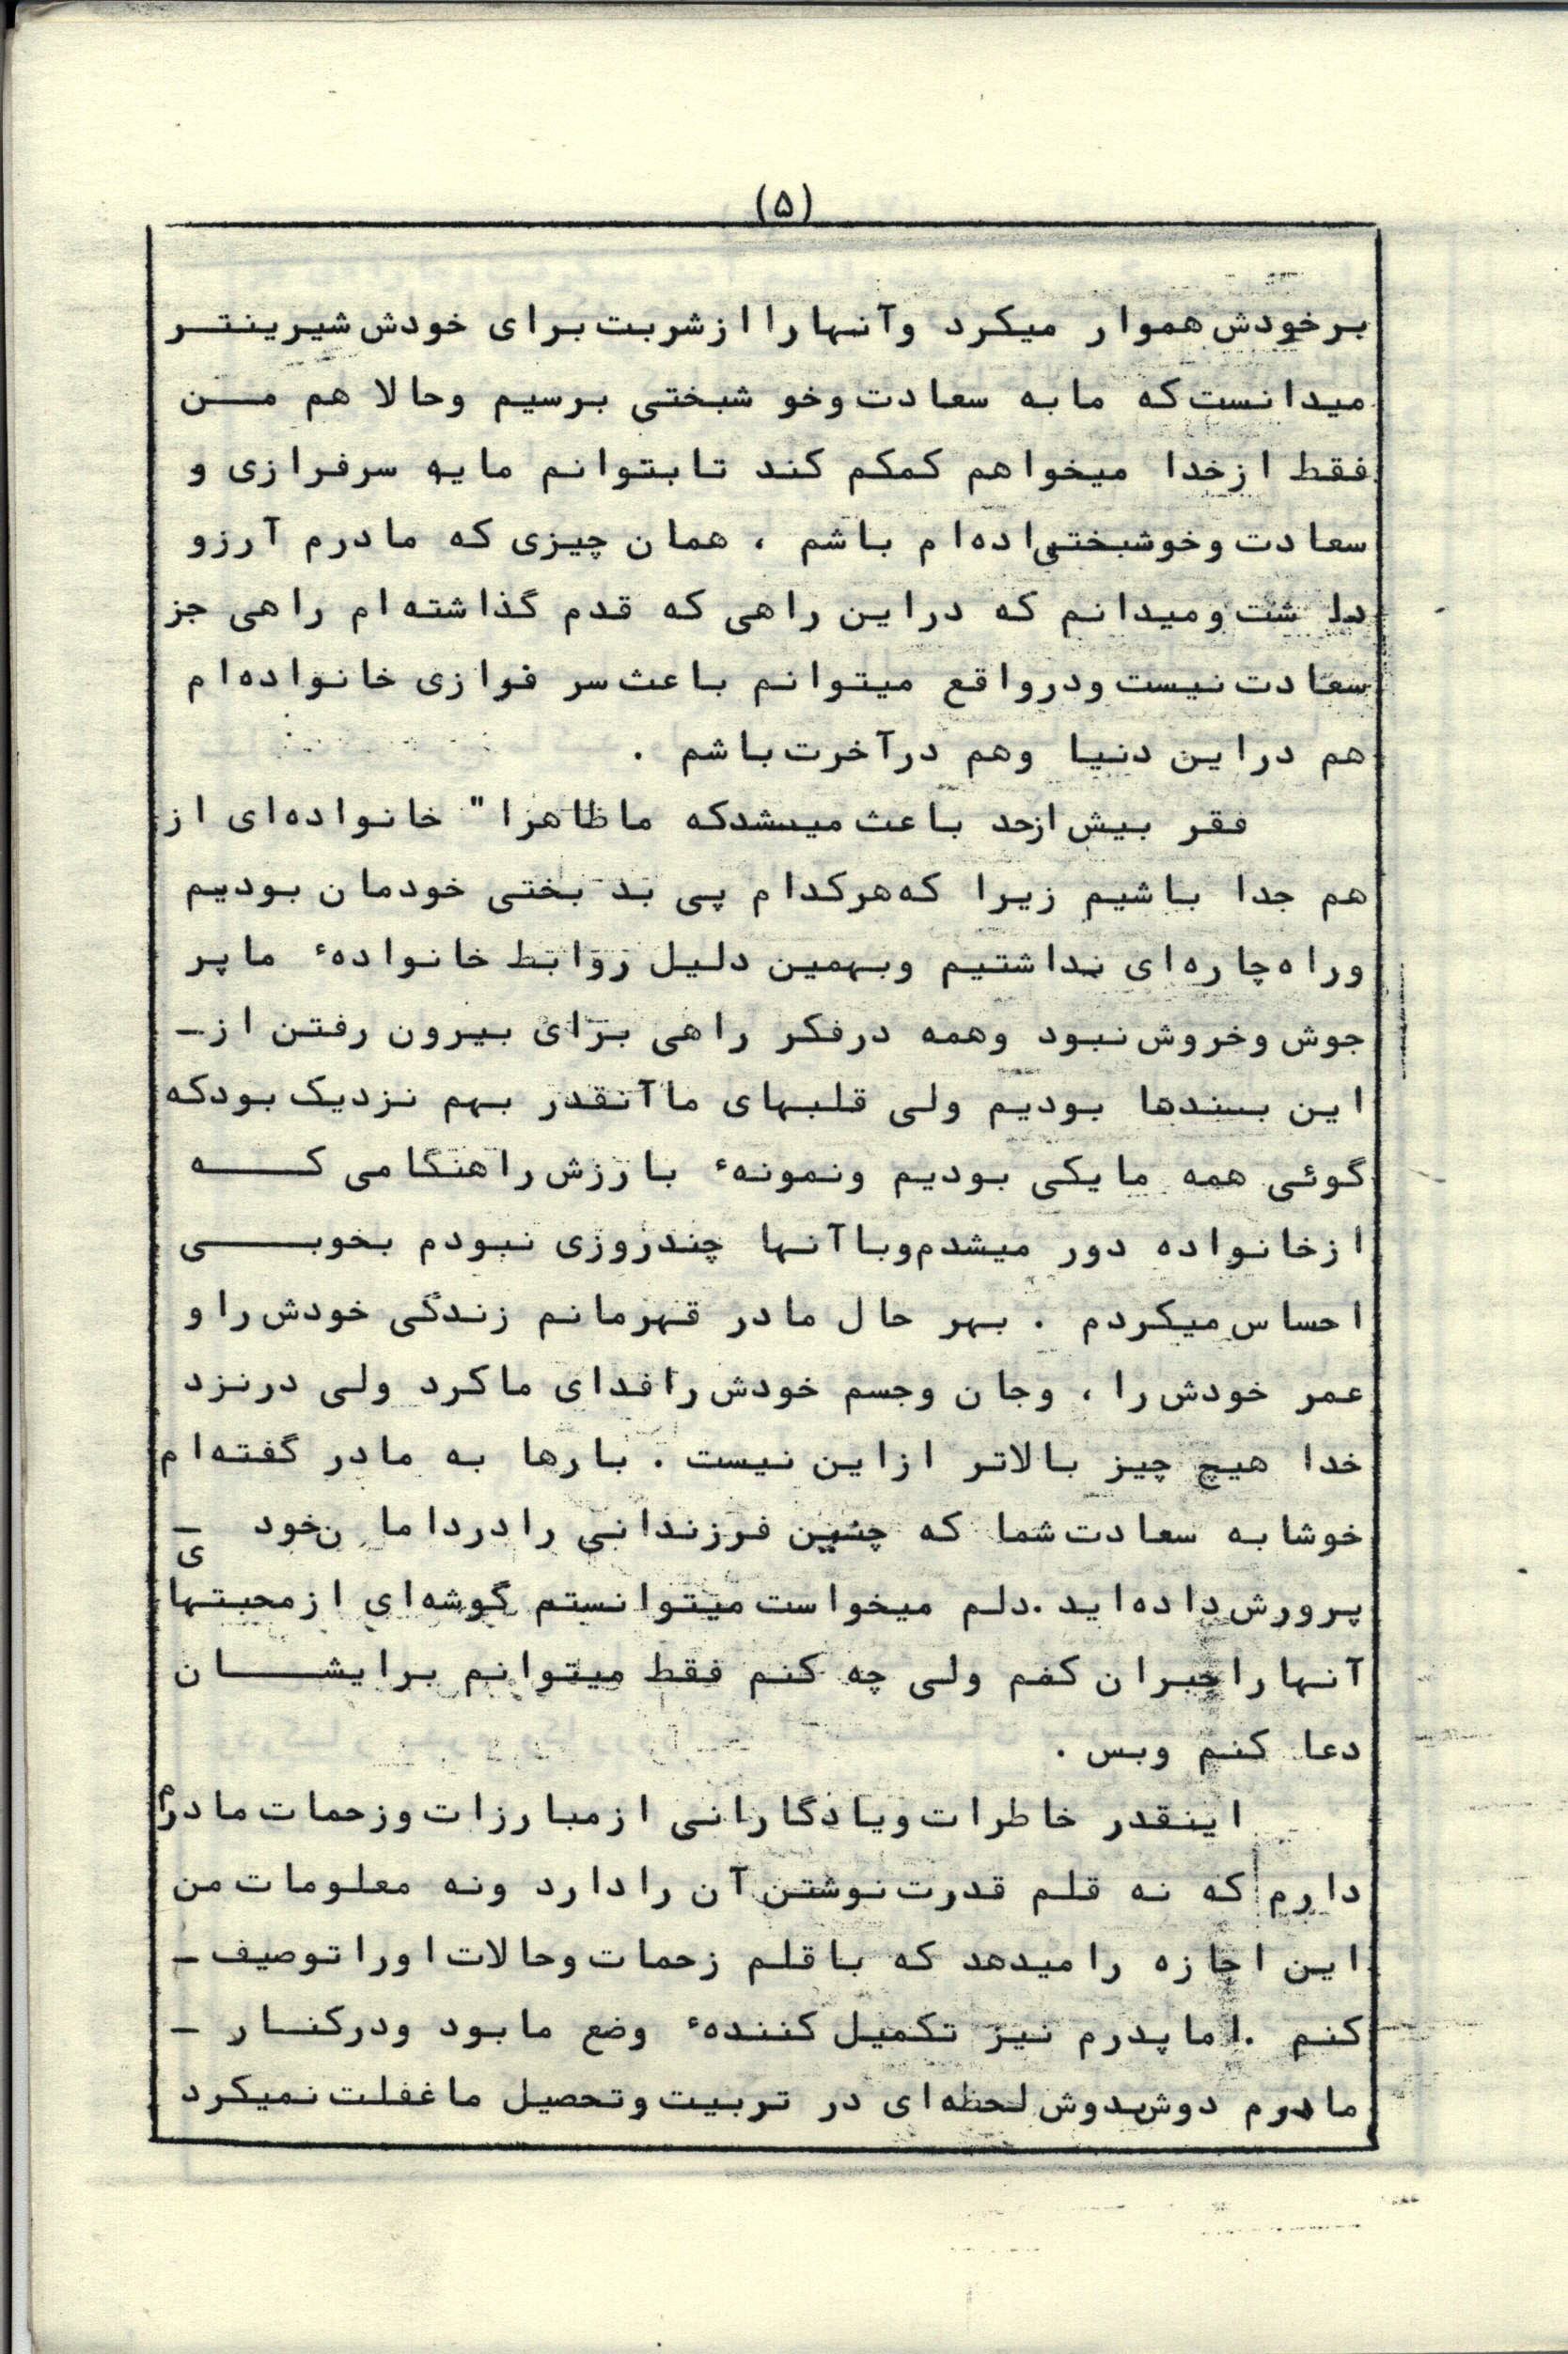 (۵)
برخودش هموار میکرد وآنهارا ازشربت برای خودش شیرینتر
میدانست که مابه سعادت وخوشبختی برسیم وحالا هم من
فقط ازخدا میخواهم کمکم کند تابتوانم مایه سرفرازی و
سعادت وخوشبختی اده‌ام باشم ، همان چیزی که مادرم آرزو
داشت ومیدانم که دراین راهی که قدم گذاشته‌ام راهی جز
سعادت نیست ودرواقع میتوانم باعث سر فوازی خانواده‌ام
هم دراین دنیا وهم درآخرت باشم .
فقر بیش ازحد باعث میشدکه ماظاهرا" خانواده‌ای از
هم جدا باشیم زیرا که هرکدام پی بد بختی خودمان بودیم
وراه چاره‌ای نداشتیم وبهمین دلیل روابط خانوادهٔ ماپر
جوش وخروش نبود وهمه درفکر راهی برای بیرون رفتن از-
این بندها بودیم ولی قلبهای ماآنقدر بهم نزدیک بودکه
گوئی همه مایکی بودیم ونمونهٔ بارزش راهنگامی که
ازخانواده دور میشدم وباآنها چندروزی نبودم بخوبی
احساس میکردم . بهر حال مادر قهرمانم زندگی خودش را و
عمر خودش را ، وجان وجسم خودش رافدای ماکرد ولی درنزد
خدا هیچ چیز بالاتر ازاین نیست . بارها به مادر گفته‌ام
خوشابه سعادت شما که چنین فرزندانی رادرداما ن خود -
پرورش داده‌اید .دلم میخواست میتوانستم گوشه‌ای ازمحبتهای
آنها راجبران کنم ولی چه کنم فقط میتوانم برایشان
دعا کنم وبس .
اینقدر خاطرات ویادگارانی ازمبارزات وزحمات مادرم
دارم که نه قلم قدرت نوشتن آن رادارد ونه معلومات من
این اجازه رامیدهد که باقلم زحمات وحالات اوراتوصیف -
کنم .اماپدرم نیز تکمیل کنندهٔ وضع مابود ودرکنار -
مادرم دوش بدوش لحظه‌ای در تربیت وتحصیل ماغفلت نمیکرد